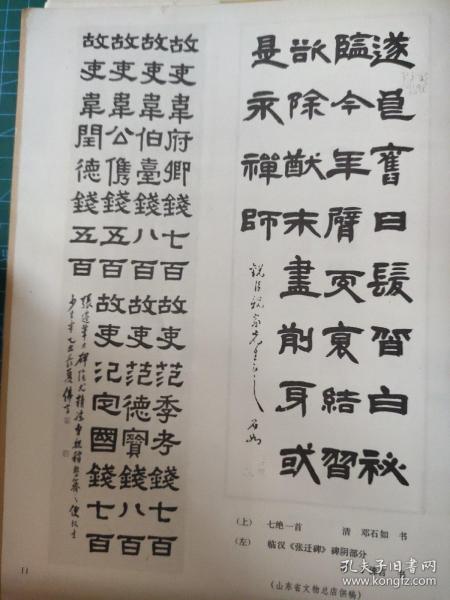 遂邑舊日髮皆白祕
臨今年臂更衰結習
欲除猷未盡前身或
是永禪師
石如
故吏韋府卿錢七百故吏范季考錢七百
故吏韋伯臺錢八百故吏范德寶錢八百
故吏韋公儁錢五百故吏氾定國錢七百
故吏韋閏德錢五百
(上) 七绝一首 清 邓石如 书
(左) 临汉《张迁碑》碑阴部分
书
(山东省文物总店供稿)
11
孔夫子旧书网